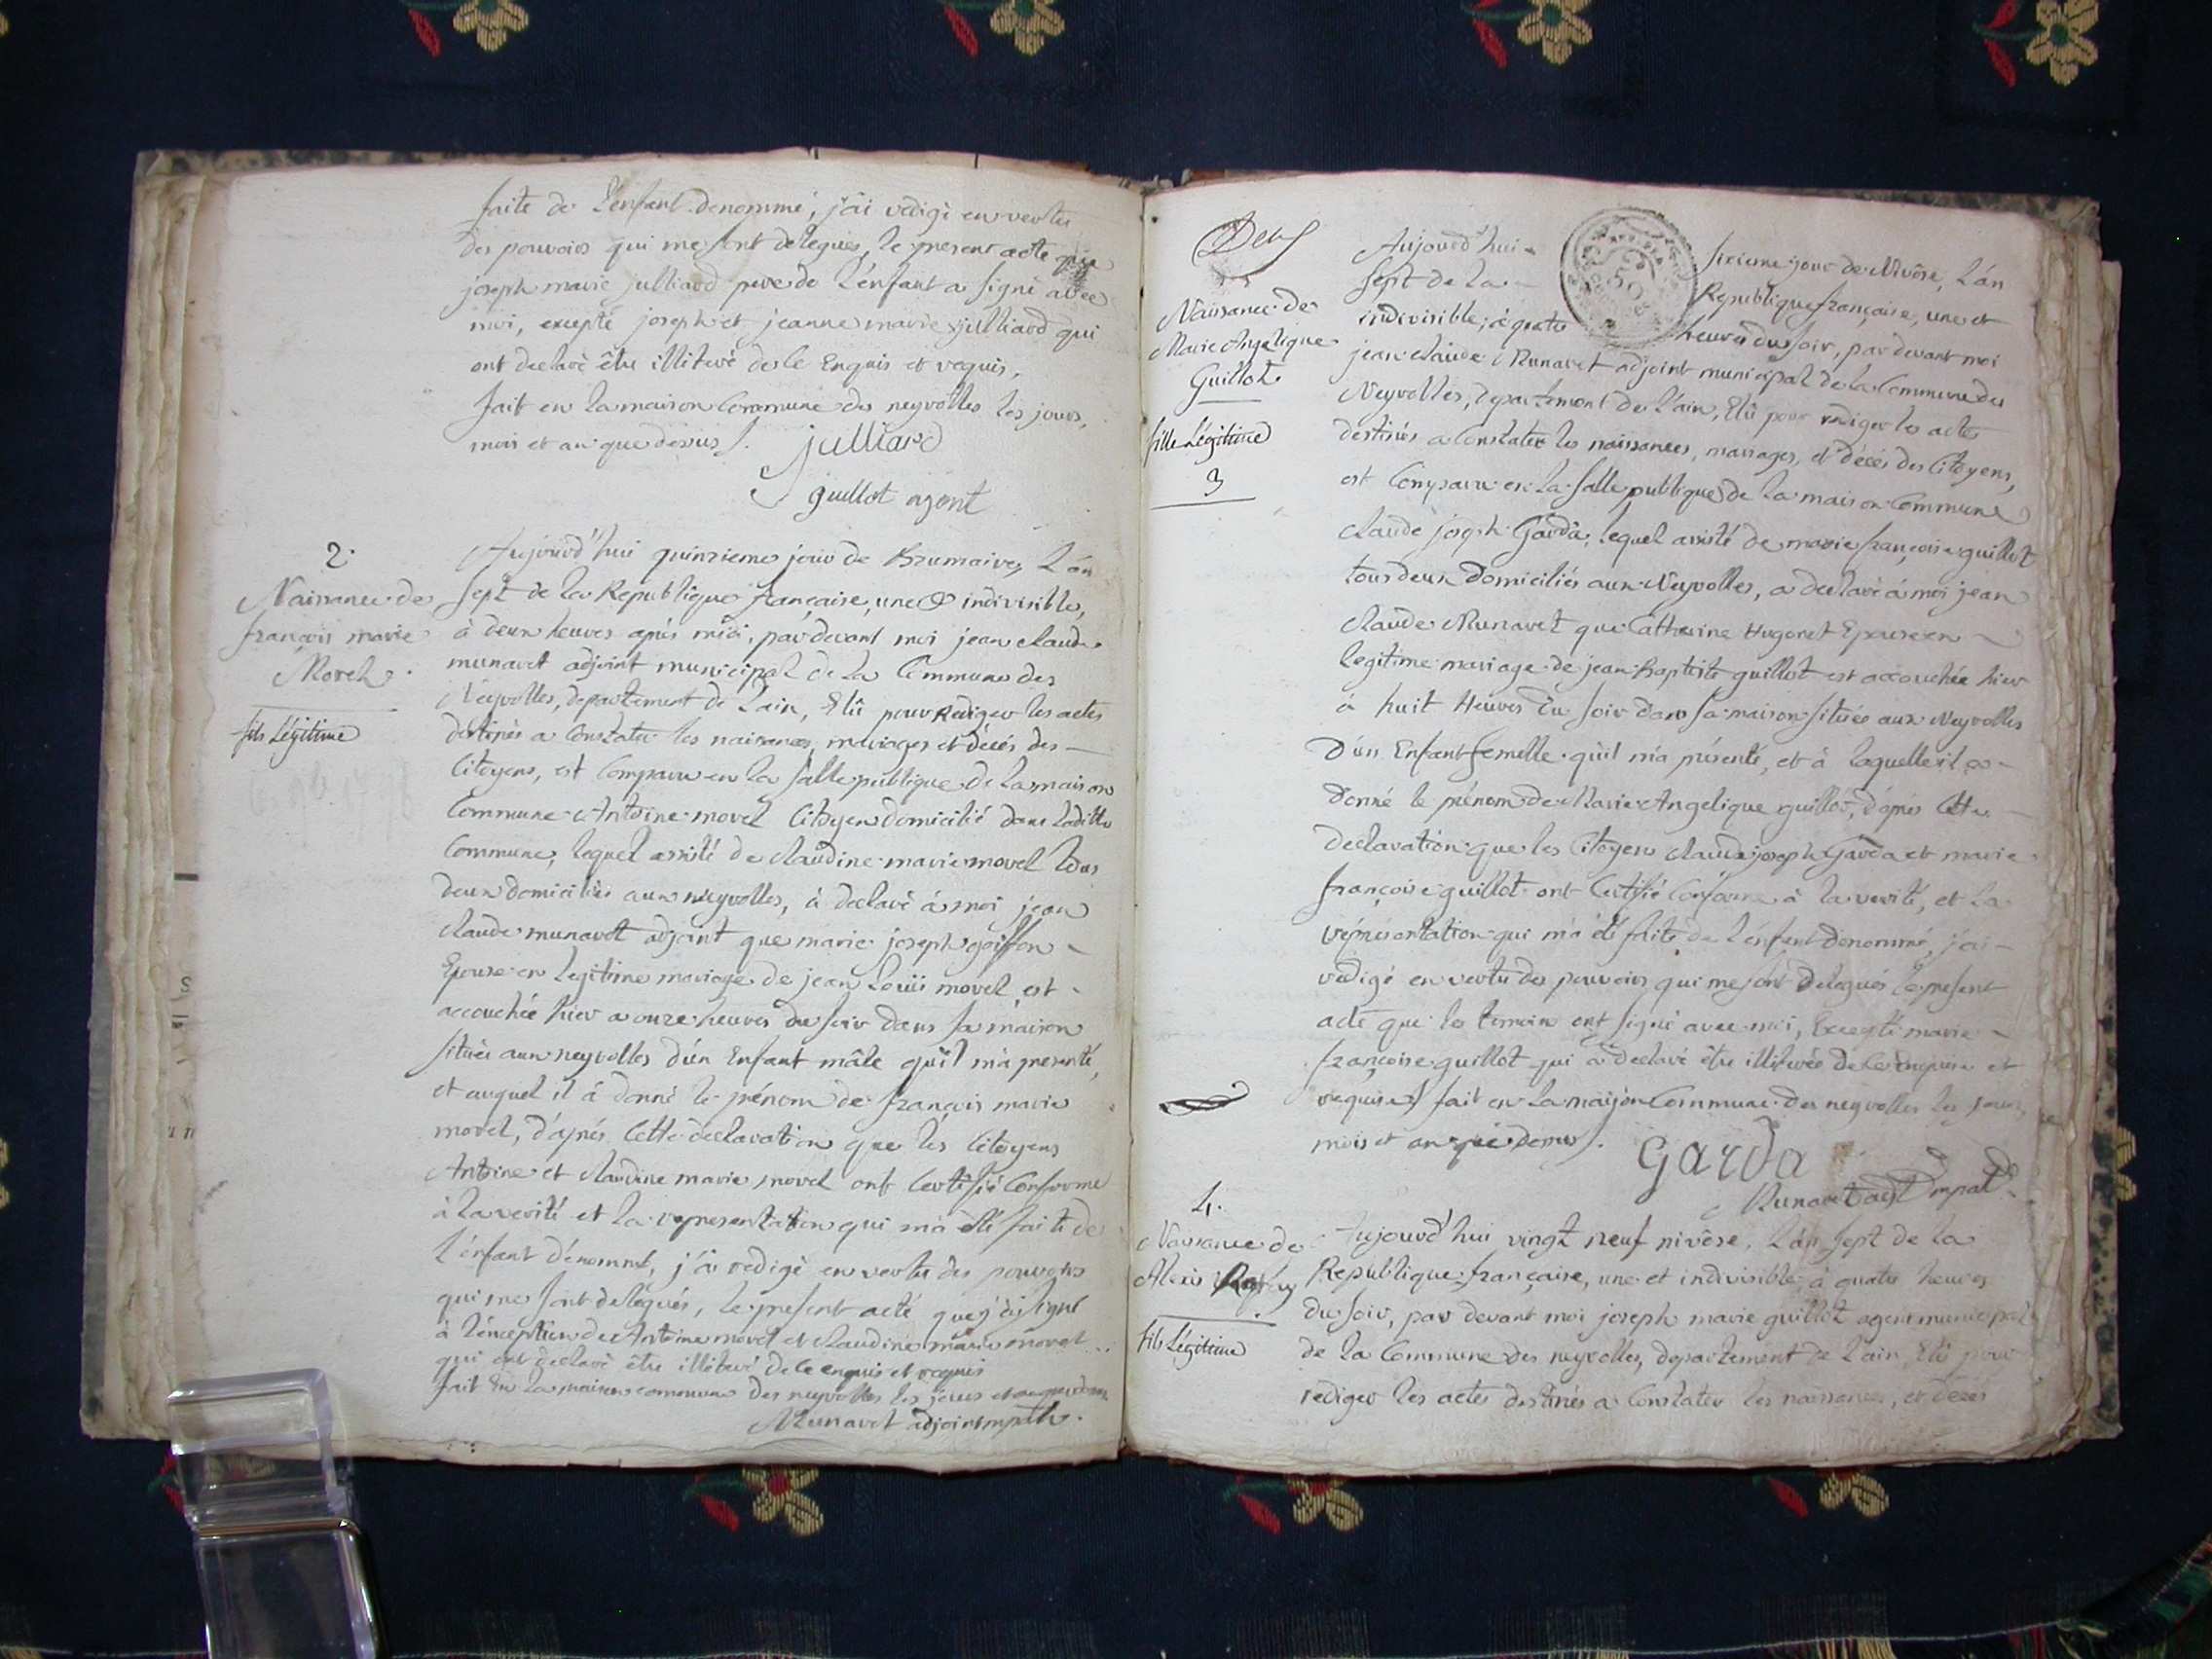 faite de L'enfant denommé, j'ai redigé en vertu
des pouvoirs qui me sont delegués, le present acte que
joseph marie julliard pere de L'enfant a signé avec
moi, excepté joseph et jeanne marie julliard qui
ont declaré être illiteré de ce Enquis et requis,
fait en la maison Commune des neyrolles les jours,
mois et an que dessus
julliard
guillot agent
2.
Naissance de
françois marie
Morel
fils Légitime
Aujourd'hui quinzieme jour de Brumaire, L'an
sept de la Republique française, une & indivisible,
à deux heures après midi, par devant moi jean claude
munaret adjoint municipal de la Commune des
Neyrolles, departement de L'ain, Elû pour Rediger les actes
destinés a Constater les naissances, mariages et décés des
Citoyens, est Comparu en la salle publique de la maison
Commune Antoine morel Citoyen domicilié dans Laditte
Commune, lequel assisté de claudine marie morel tous
deux domiciliés aux neyrolles, à declaré à moi jean
claude munaret adjoint que marie joseph goiffon
Epouse en legitime mariage de jean Louïs morel est
accouchée hier a onze heures du soir dans sa maison
située aux neyrolles d'un Enfant mâle qu'il m'a presenté,
et auquel il à donné le prénom de françois marie
morel, d'après Cette déclaration que les Citoyens
Antoine et claudine marie morel ont Certifié Conforme
à la verité et la representation qui m'a été faite de
L'enfant dénommé, j'ai redigé en vertu des pouvoirs
qui me sont delegués, le present acté que j'ai signé
à l'exception de Antoine morel et claudine marie morel
qui ont declaré être illiteré de ce enquis et requis
fait En la maison commune des neyrolles les jours et an que dessus
Munaret adjoint mpal.
Deux
Naissance de
Marie Angelique
Guillot
fille Légitime
3
Aujourd'hui sixieme jour de Nivôse, L'an
sept de la Republique française, une et
indivisible, à quatre heures du soir, par devant moi
jean claude Munaret adjoint municipal de la Commune des
Neyrolles, departement de L'ain, Elû pour rediger les actes
destinés a Constater les naissances, mariages, et décés des Citoyens,
est Comparu en la salle publique de la maison Commune
claude joseph Garda, lequel assisté de marie françoise guillot
tous deux Domiciliés aux Neyrolles, a declaré à moi jean
claude Munaret que Catherine Hugonet Epouse en
legitime mariage de jean Baptiste guillot est accouchée hier
à huit Heures du soir dans sa maison située aux Neyrolles
D'un Enfant femelle qu'il m'a présenté, et à laquelle il a
Donné le prénom de Marie Angelique guillot, d'après Cette
Declaration que les Citoyens claude joseph Garda et marie
françoise guillot ont Certifié Conforme à la verité, et la
réprésentation qui m'a été faite de l'enfant dénommé, j'ai
redigé en vertu des pouvoirs qui me sont delegués le present
acte que les temoins ont signé avec moi, Excepté marie
françoise guillot qui à declaré être illiterée de ce enquise et
requise, fait en la maison Commune des neyrolles les jours,
mois et an que dessus.
Garda
Munaret adjt mpal
4.
Naissance de
Alexis
fils Légitime
Aujourd'hui vingt neuf nivôse, L'an sept de la
Republique française, une et indivisible à quatre heures
du soir, par devant moi joseph marie guillot agent municipal
de la Commune des neyrolles, departement de L'ain, Elû pour
rediger les actes destinés a Constater les naissances, et décés